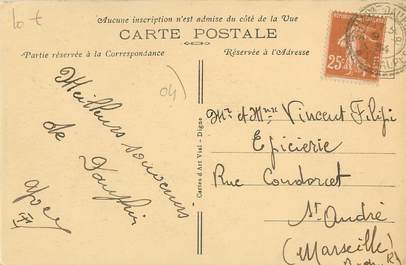 10 €
Aucune inscription n'est admise du côté de la Vue
CARTE POSTALE
Partie réservée à la Correspondance
Réservée à l'Adresse
04)
25c
Meilleurs souvenirs
de Dauphin
Cartes d'Art Vial - Digne
Mr et Mme Vincent Filipi
Epicierie
Rue Condorcet
St André
(Marseille)